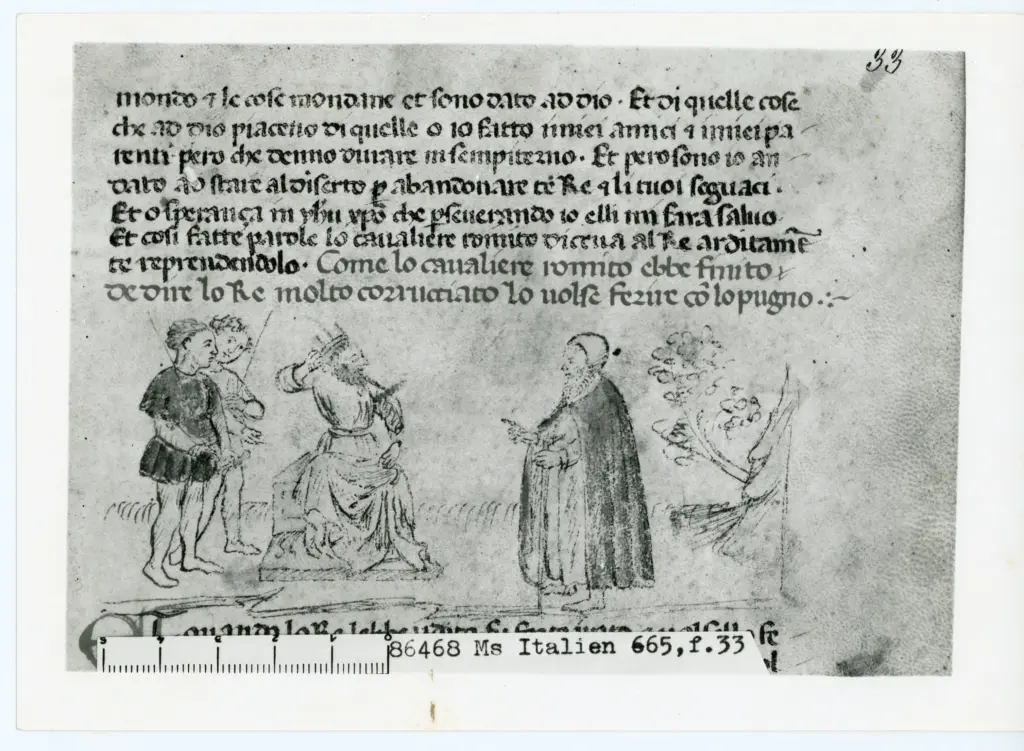 33
mondo ⁊ le cose mondane et sono dato ad dio · Et di quelle cose
che ad dio piaceno di quelle o io fatto miei amici ⁊ miei pa
renti pero che denno durare in sempiterno · Et pero sono io an
dato ad stare al diserto ꝑ abandonare te Re ⁊ li tuoi seguaci ·
Et o sperança in yhu xpo che ꝑseuerando io elli mi fara saluo
Et cosi fatte parole lo caualiere romito diceua al Re arditamē
te reprendendolo · Come lo caualiere romito ebbe finito
de dire lo Re molto corrucciato lo uolse ferire cō lo pugno .:~
quando lo Re
86468 Ms Italien 665,f.33